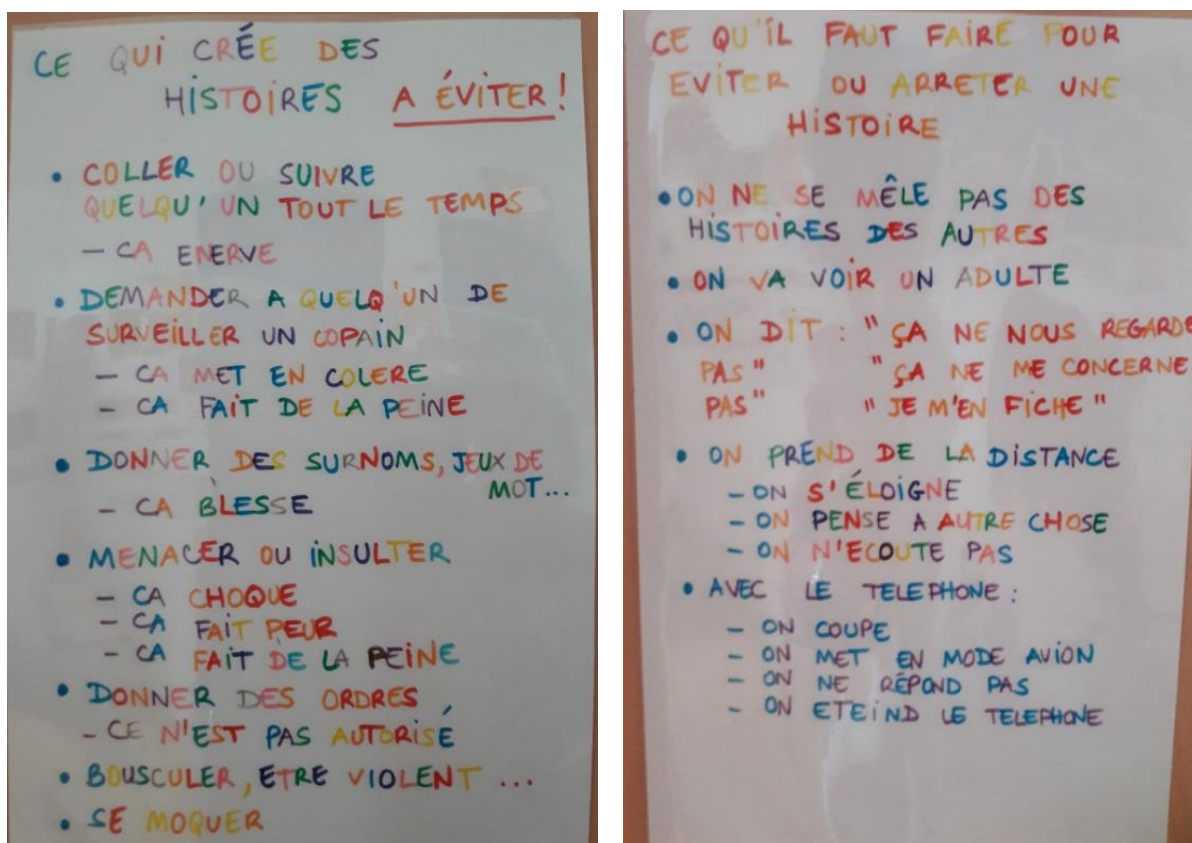 CE QUI CRÉE DES
HISTOIRES A ÉVITER !
• COLLER OU SUIVRE
QUELQU'UN TOUT LE TEMPS
- CA ENERVE
• DEMANDER A QUELQ'UN DE
SURVEILLER UN COPAIN
- CA MET EN COLERE
- CA FAIT DE LA PEINE
• DONNER DES SURNOMS, JEUX DE
MOT...
- CA BLESSE
• MENACER OU INSULTER
- CA CHOQUE
- CA FAIT PEUR
- CA FAIT DE LA PEINE
• DONNER DES ORDRES
- CE N'EST PAS AUTORISÉ
• BOUSCULER, ETRE VIOLENT ...
• SE MOQUER
CE QU'IL FAUT FAIRE POUR
EVITER OU ARRETER UNE
HISTOIRE
• ON NE SE MÊLE PAS DES
HISTOIRES DES AUTRES
• ON VA VOIR UN ADULTE
• ON DIT : "ÇA NE NOUS REGARDE
PAS" "ÇA NE ME CONCERNE
PAS" "JE M'EN FICHE"
• ON PREND DE LA DISTANCE
- ON S'ÉLOIGNE
- ON PENSE A AUTRE CHOSE
- ON N'ECOUTE PAS
• AVEC LE TELEPHONE :
- ON COUPE
- ON MET EN MODE AVION
- ON NE RÉPOND PAS
- ON ETEIND LE TELEPHONE